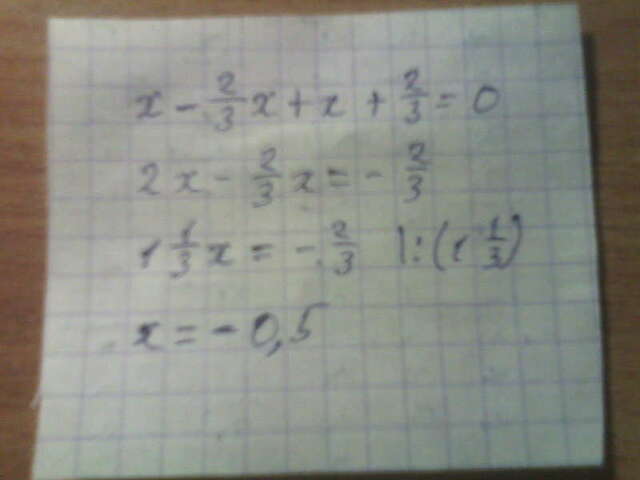 x - 2/3 x + x + 2/3 = 0
2x - 2/3 x = - 2/3
1 1/3 x = - 2/3 |:(1 1/3)
x = - 0,5